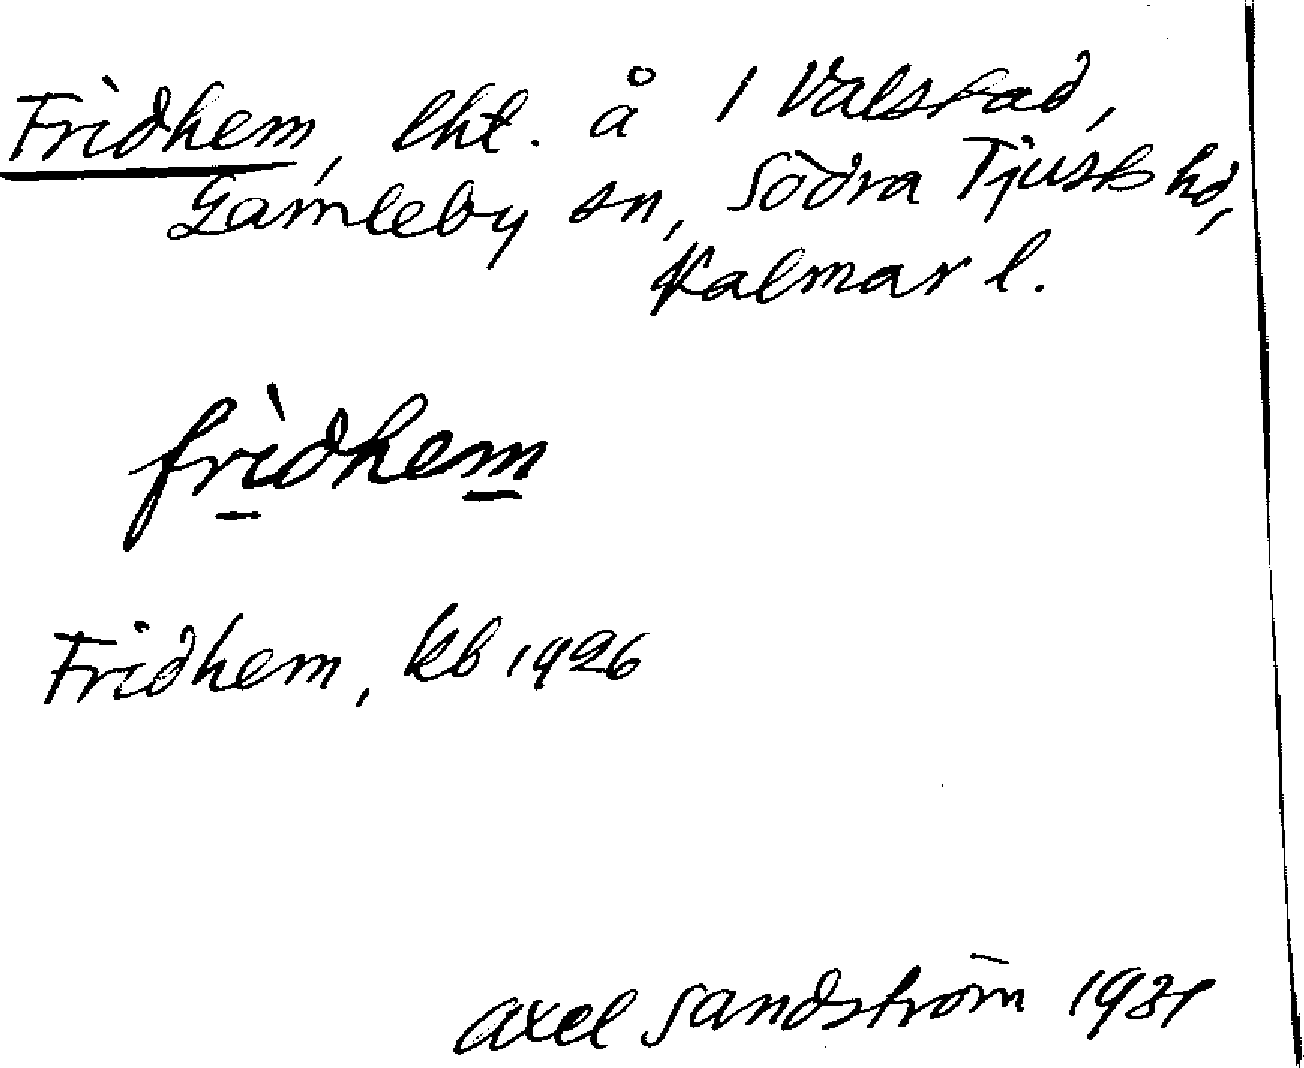 Fridhem, lht. å 1 Valstad,
Gamleby sn, Södra Tjusts hd,
Kalmar l.
frìdhem
Fridhem, kb 1926
Axel Sandström 1931